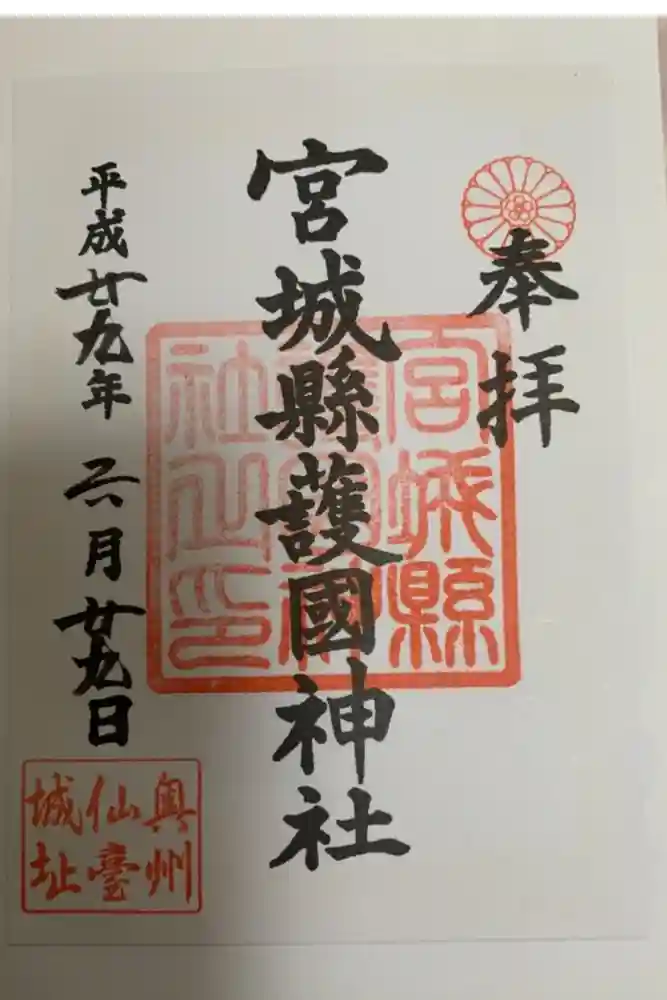 奉拝
宮城縣
護國神
社之印
宮城縣護國神社
平成廿九年 六月廿九日
奥州
仙臺
城址